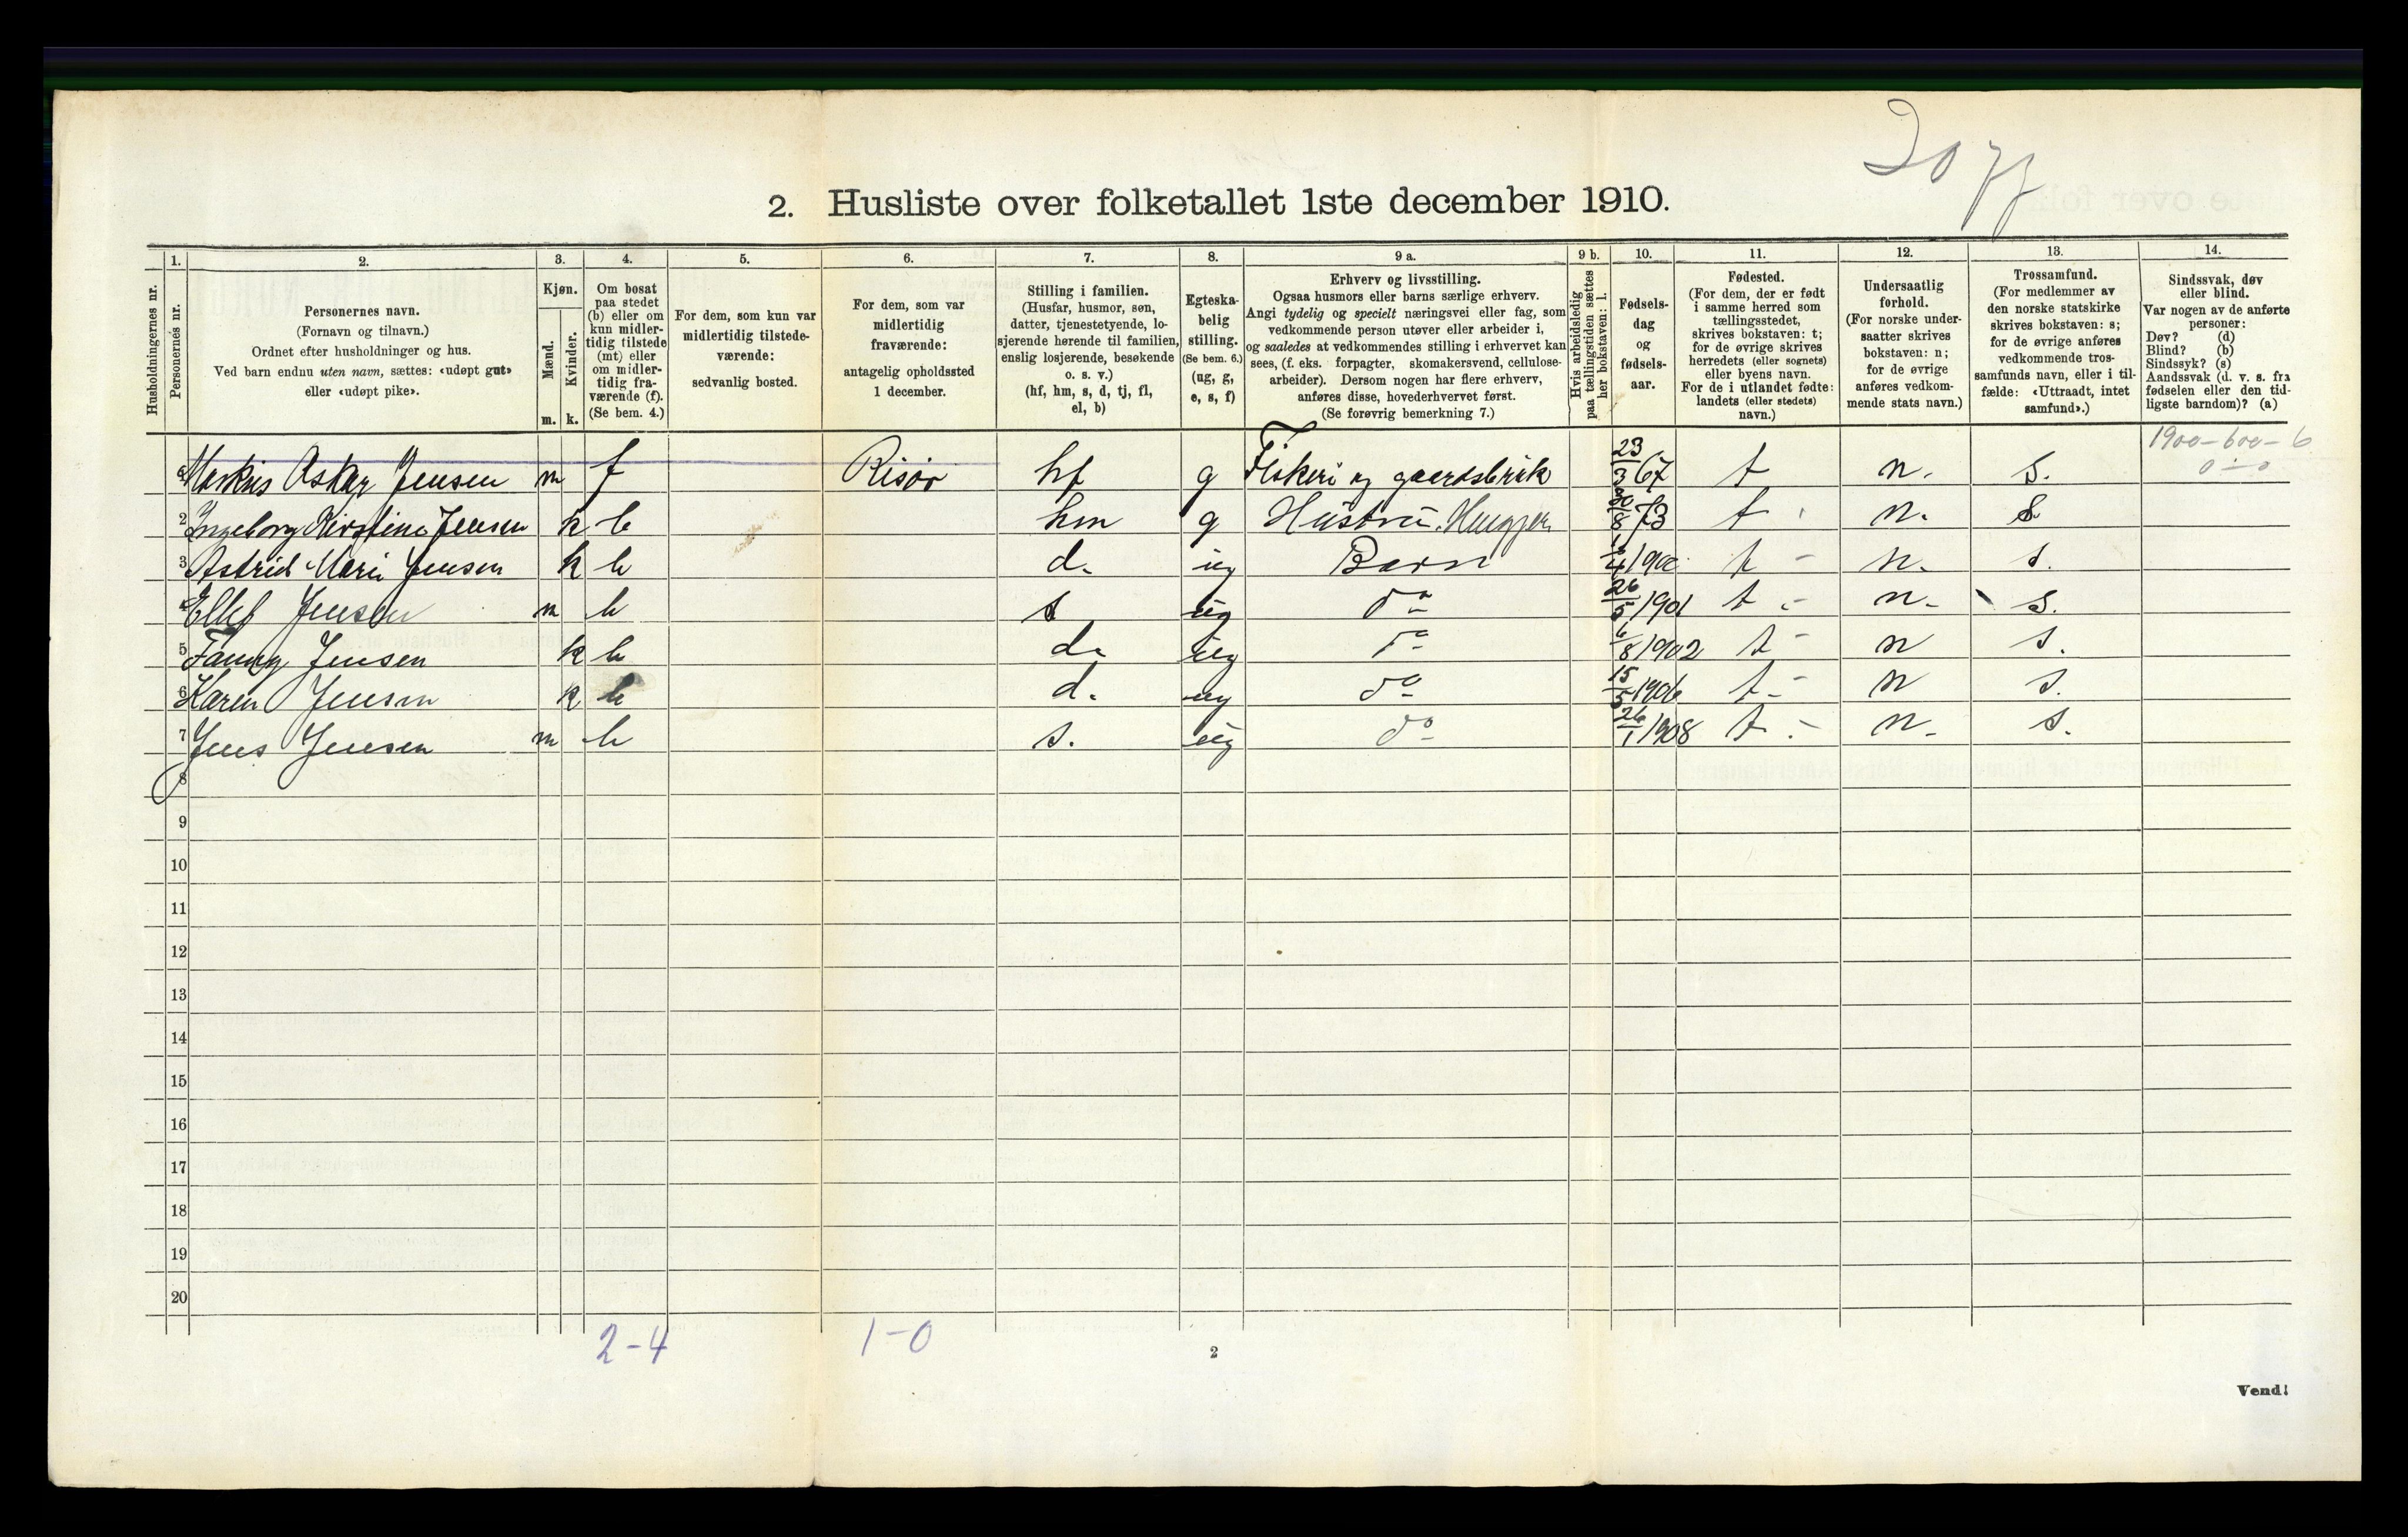 2. Husliste over folketallet 1ste december 1910.
Husholdningernes nr.
1. Personernes nr.
2. Personernes navn.
(Fornavn og tilnavn.)
Ordnet efter husholdninger og hus.
Ved barn endnu uten navn, sættes: «udøpt gut»
eller «udøpt pike».
3. Kjøn.
Mænd. m.
Kvinder. k.
4. Om bosat
paa stedet
(b) eller om
kun midler-
tidig tilstede
(mt) eller
om midler-
tidig fra-
værende (f).
(Se bem. 4.)
5. For dem, som kun var
midlertidig tilstede-
værende:
sedvanlig bosted.
6. For dem, som var
midlertidig
fraværende:
antagelig opholdssted
1 december.
7. Stilling i familien.
(Husfar, husmor, søn,
datter, tjenestetyende, lo-
sjerende hørende til familien,
enslig losjerende, besøkende
o. s. v.)
(hf, hm, s, d, tj, fl,
el, b)
8. Egteska-
belig
stilling.
(Se bem. 6.)
(ug, g,
e, s, f)
9 a. Erhverv og livsstilling.
Ogsaa husmors eller barns særlige erhverv.
Angi tydelig og specielt næringsvei eller fag, som
vedkommende person utøver eller arbeider i,
og saaledes at vedkommendes stilling i erhvervet kan
sees, (f. eks. forpagter, skomakersvend, cellulose-
arbeider). Dersom nogen har flere erhverv,
anføres disse, hovederhvervet først.
(Se forøvrig bemerkning 7.)
9 b. Hvis arbeidsledig
paa tællingstiden sættes
her bokstaven: l.
10. Fødsels-
dag
og
fødsels-
aar.
11. Fødested.
(For dem, der er født
i samme herred som
tællingsstedet,
skrives bokstaven: t;
for de øvrige skrives
herredets (eller sognets)
eller byens navn.
For de i utlandet fødte:
landets (eller stedets)
navn.)
12. Undersaatlig
forhold.
(For norske under-
saatter skrives
bokstaven: n;
for de øvrige
anføres vedkom-
mende stats navn.)
13. Trossamfund.
(For medlemmer av
den norske statskirke
skrives bokstaven: s;
for de øvrige anføres
vedkommende tros-
samfunds navn, eller i til-
fælde: «Uttraadt, intet
samfund».)
14. Sindssvak, døv
eller blind.
Var nogen av de anførte
personer:
Døv? (d)
Blind? (b)
Sindssyk? (s)
Aandssvak (d. v. s. fra
fødselen eller den tid-
ligste barndom)? (a)
1900-600-6
0-0
Markus Oskar Jensen m f Risør hf g Fiskeri og gaardsbruk 23/3 67 t n. s.
2 Ingeborg Kirstine Jensen k b hm g Hustru 30/8 73 t n. s
3 Astrid Marie Jensen k b d. ug Barn 1900 t - n. s.
4 Ellef Jensen m b s ug do 26/5 1901 t - n - s.
5 Fanny Jensen k b d. ug do 6/8 1902 t - n s.
6 Karen Jensen k b d. ug do 15/5 1906 t - n s.
7 Jens Jensen m b s. ug do 26/1 1908 t - n - s.
8
9
10
11
12
13
14
15
16
17
18
19
20
2-4 1-0
2
Vend!